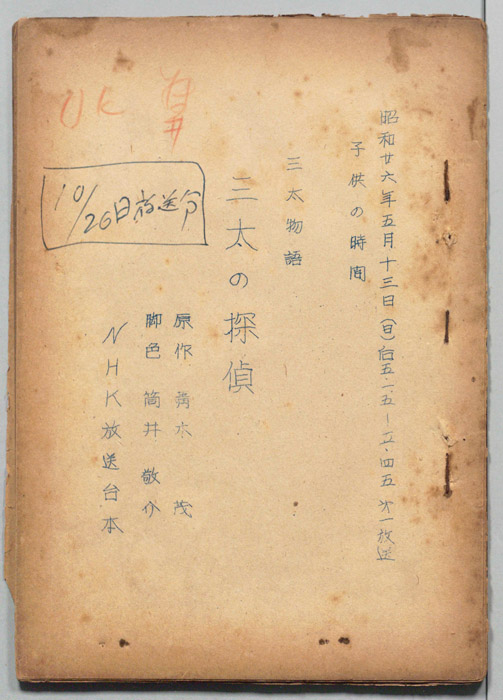 昭和廿六年五月十三日(日)自五・一五-五・四五 㐧一放送
子供の時間
三太物語
三太の探偵
原作 青木 茂
脚色 筒井 敬介
NHK放送台本
10/26日放送分